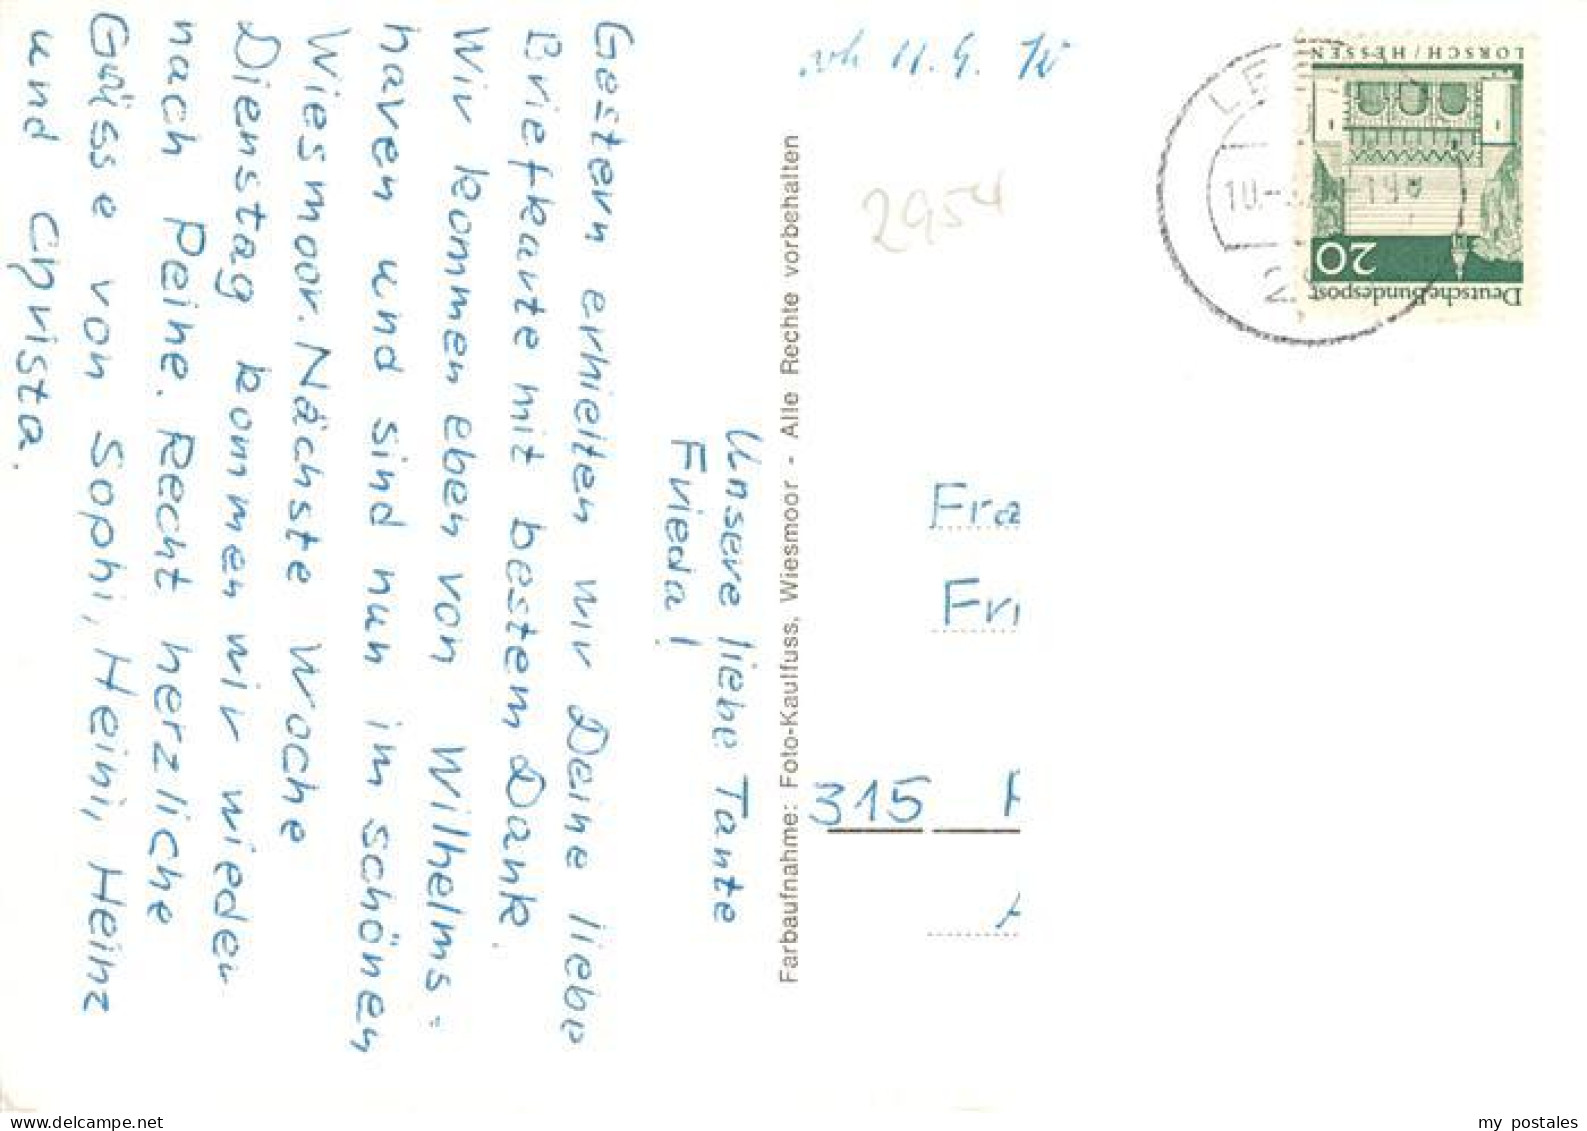 Unsere liebe Tante
Frieda!
Gestern erhielten wir Deine liebe
Briefkarte mit bestem Dank.
Wir kommen eben von Wilhelms=
haven und sind nun im schönen
Wiesmoor. Nächste Woche
Dienstag kommen wir wieder
nach Peine. Recht herzliche
Grüsse von Sophi, Heini, Heinz
und Christa.
Farbaufnahme: Foto-Kaulfuss, Wiesmoor - Alle Rechte vorbehalten
11.9.
2954
Fra
Fri
315
LORSCH/HESSEN
20
Deutsche Bundespost
10.-
-19
2
www.delcampe.net
my_postales